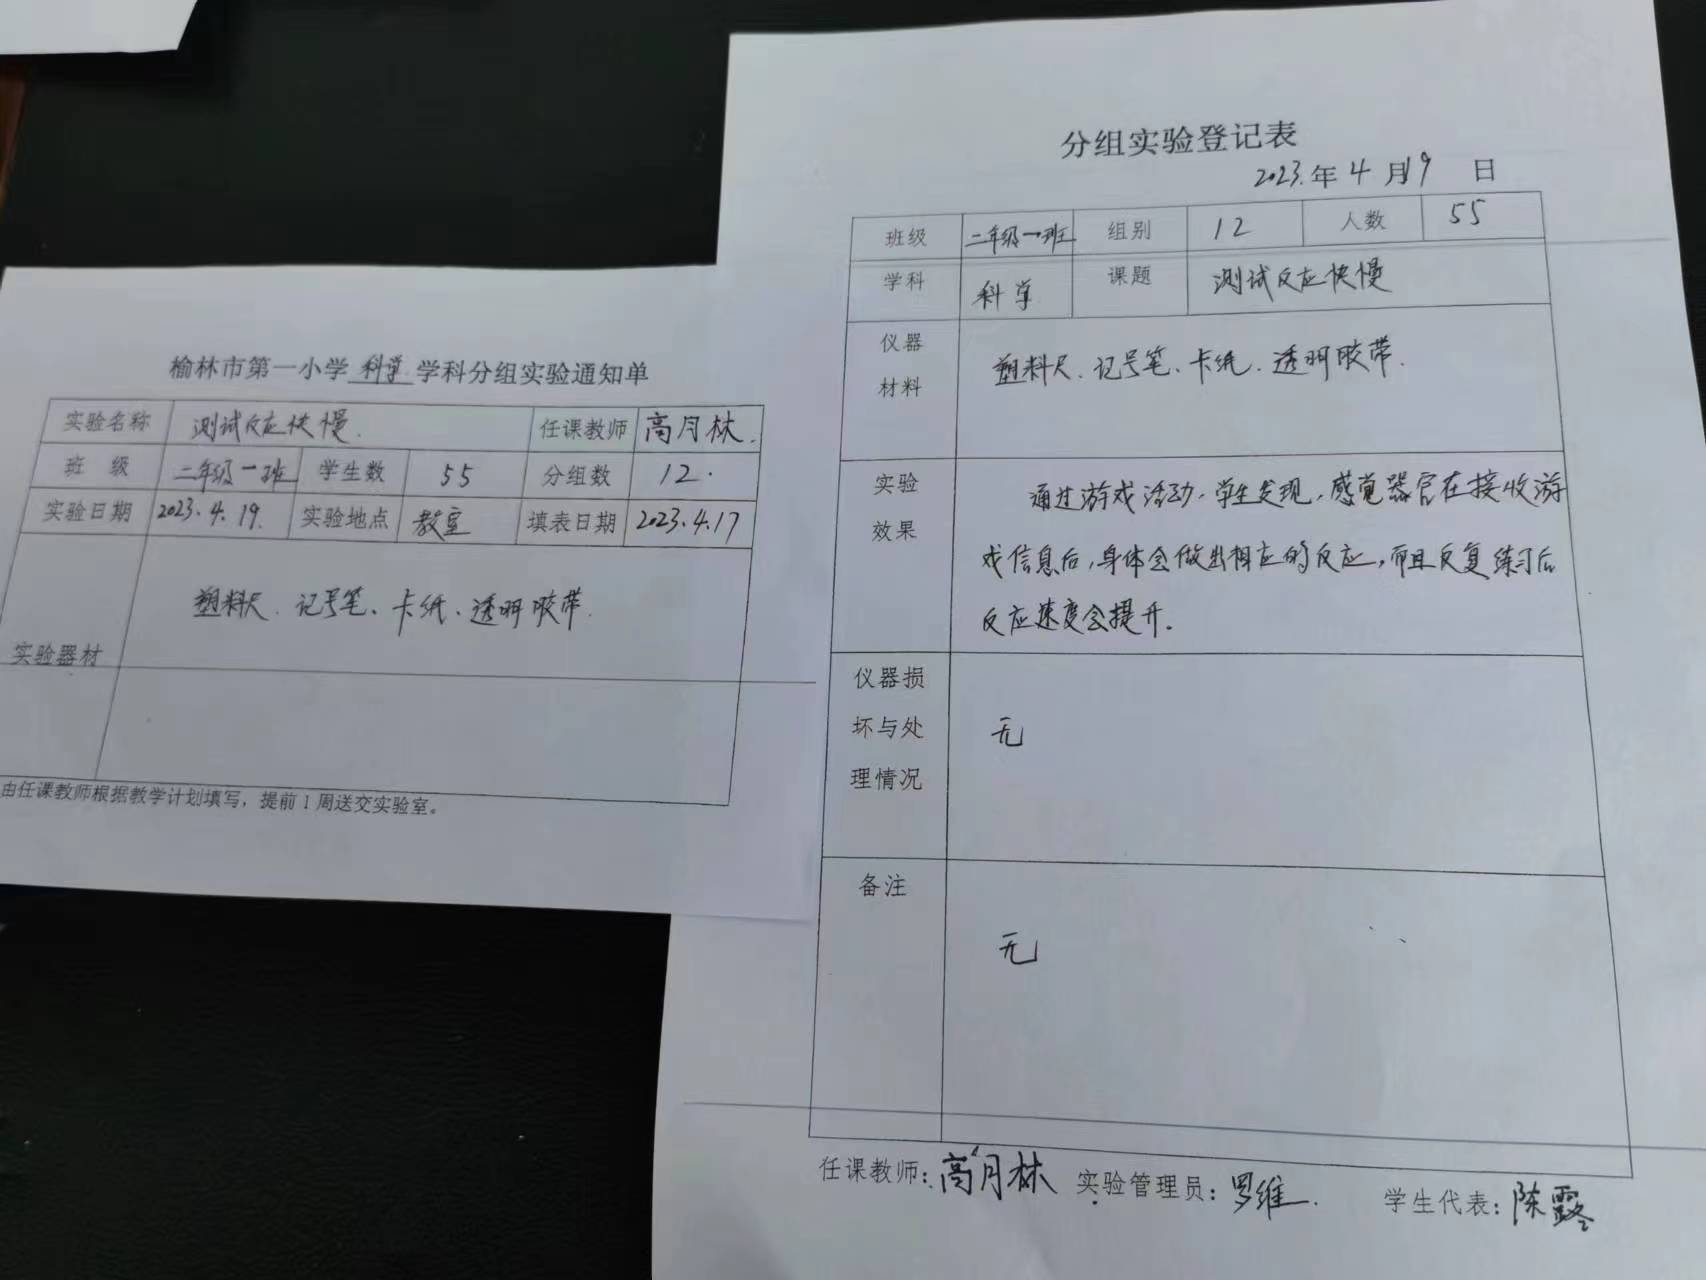 榆林市第一小学科学学科分组实验通知单
实验名称 测试反应快慢. 任课教师 高月林.
班 级 二年级一班 学生数 55 分组数 12.
实验日期 2023.4.19. 实验地点 教室 填表日期 2023.4.17
塑料尺、记号笔、卡纸、透明胶带.
实验器材
由任课教师根据教学计划填写，提前1周送交实验室。
分组实验登记表
2023.年4月19日
班级 二年级一班 组别 12 人数 55
学科 科学 课题 测试反应快慢
仪器 塑料尺、记号笔、卡纸、透明胶带.
材料
实验 通过游戏活动，学生发现，感觉器官在接收游
效果 戏信息后，身体会做出相应的反应，而且反复练习后
反应速度会提升.
仪器损
坏与处 无
理情况
备注
无
任课教师：高月林 实验管理员：罗维. 学生代表：陈露